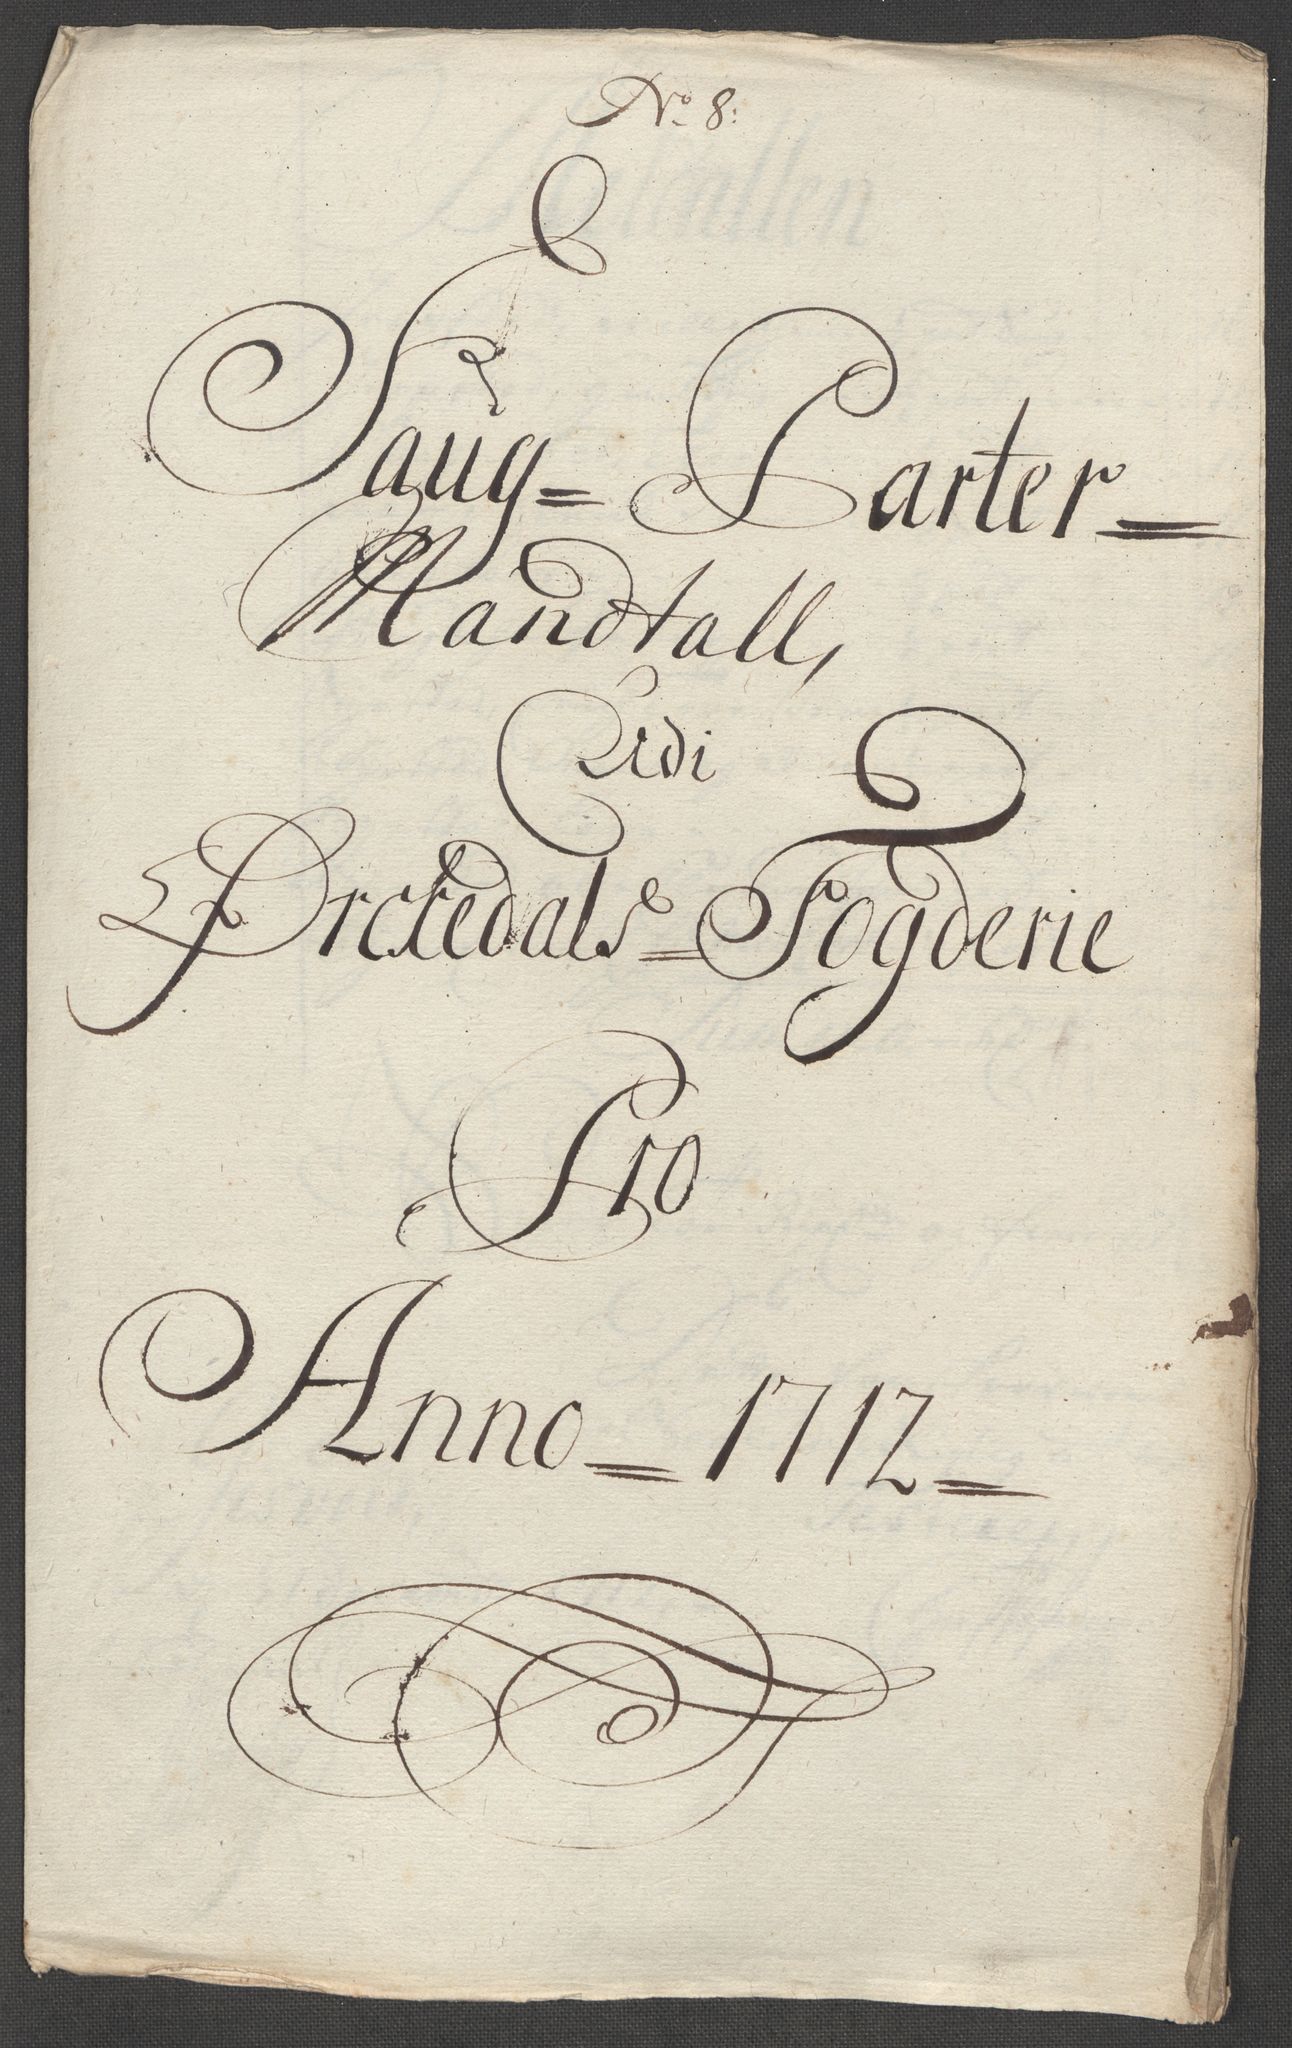 No 8:
Saug= Parter=
Mandtall,
Udi
Ørckedals= Fogderie
Pro
Anno= 1712=